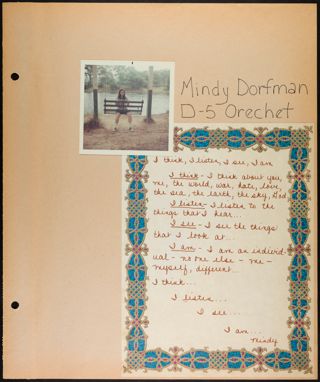 Mindy Dorfman
D-5 Orechet
I think, I listen, I see, I am
I think - I think about you,
me, the world, war, hate, love,
the sea, the earth, the sky, God
I listen - I listen to the
things that I hear...
I see - I see the things
that I look at...
I am - I am an individ-
ual - no one else - me -
myself, different...
I think...
I listen...
I see...
I am...
Mindy